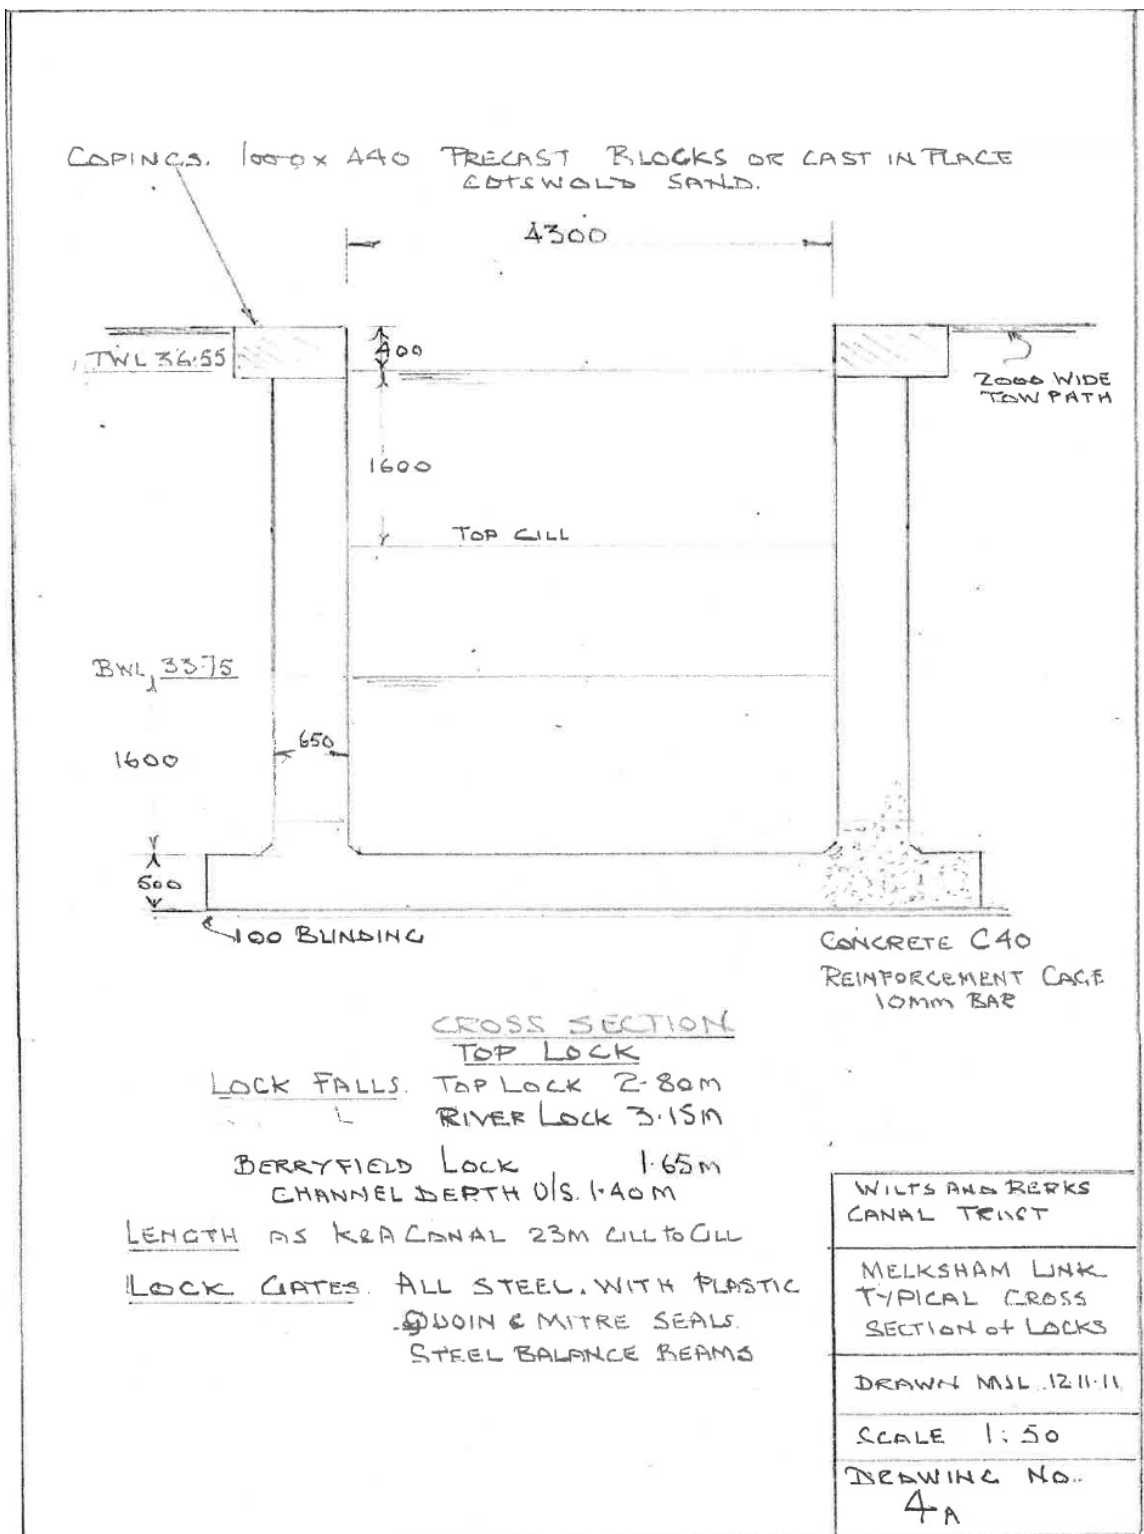 COPINGS. 1000 x 440 PRECAST BLOCKS OR CAST IN PLACE
COTSWOLD SAND.
4300
TWL 36.55
400
2000 WIDE
TOW PATH
1600
TOP CILL
BWL 33.75
650
1600
500
100 BLINDING
CONCRETE C40
REINFORCEMENT CAGE
10MM BAR
CROSS SECTION
TOP LOCK
LOCK FALLS. TOP LOCK 2.80M
RIVER LOCK 3.15M
BERRYFIELD LOCK 1.65M
CHANNEL DEPTH U/S. 1.40M
LENGTH AS K&A CANAL 23M CILL to CILL
LOCK GATES. ALL STEEL. WITH PLASTIC
QUOIN & MITRE SEALS.
STEEL BALANCE BEAMS
WILTS AND BERKS
CANAL TRUST
MELKSHAM LINK
TYPICAL CROSS
SECTION of LOCKS
DRAWN MJL 12.11.11
SCALE 1:50
DRAWING NO.
4A